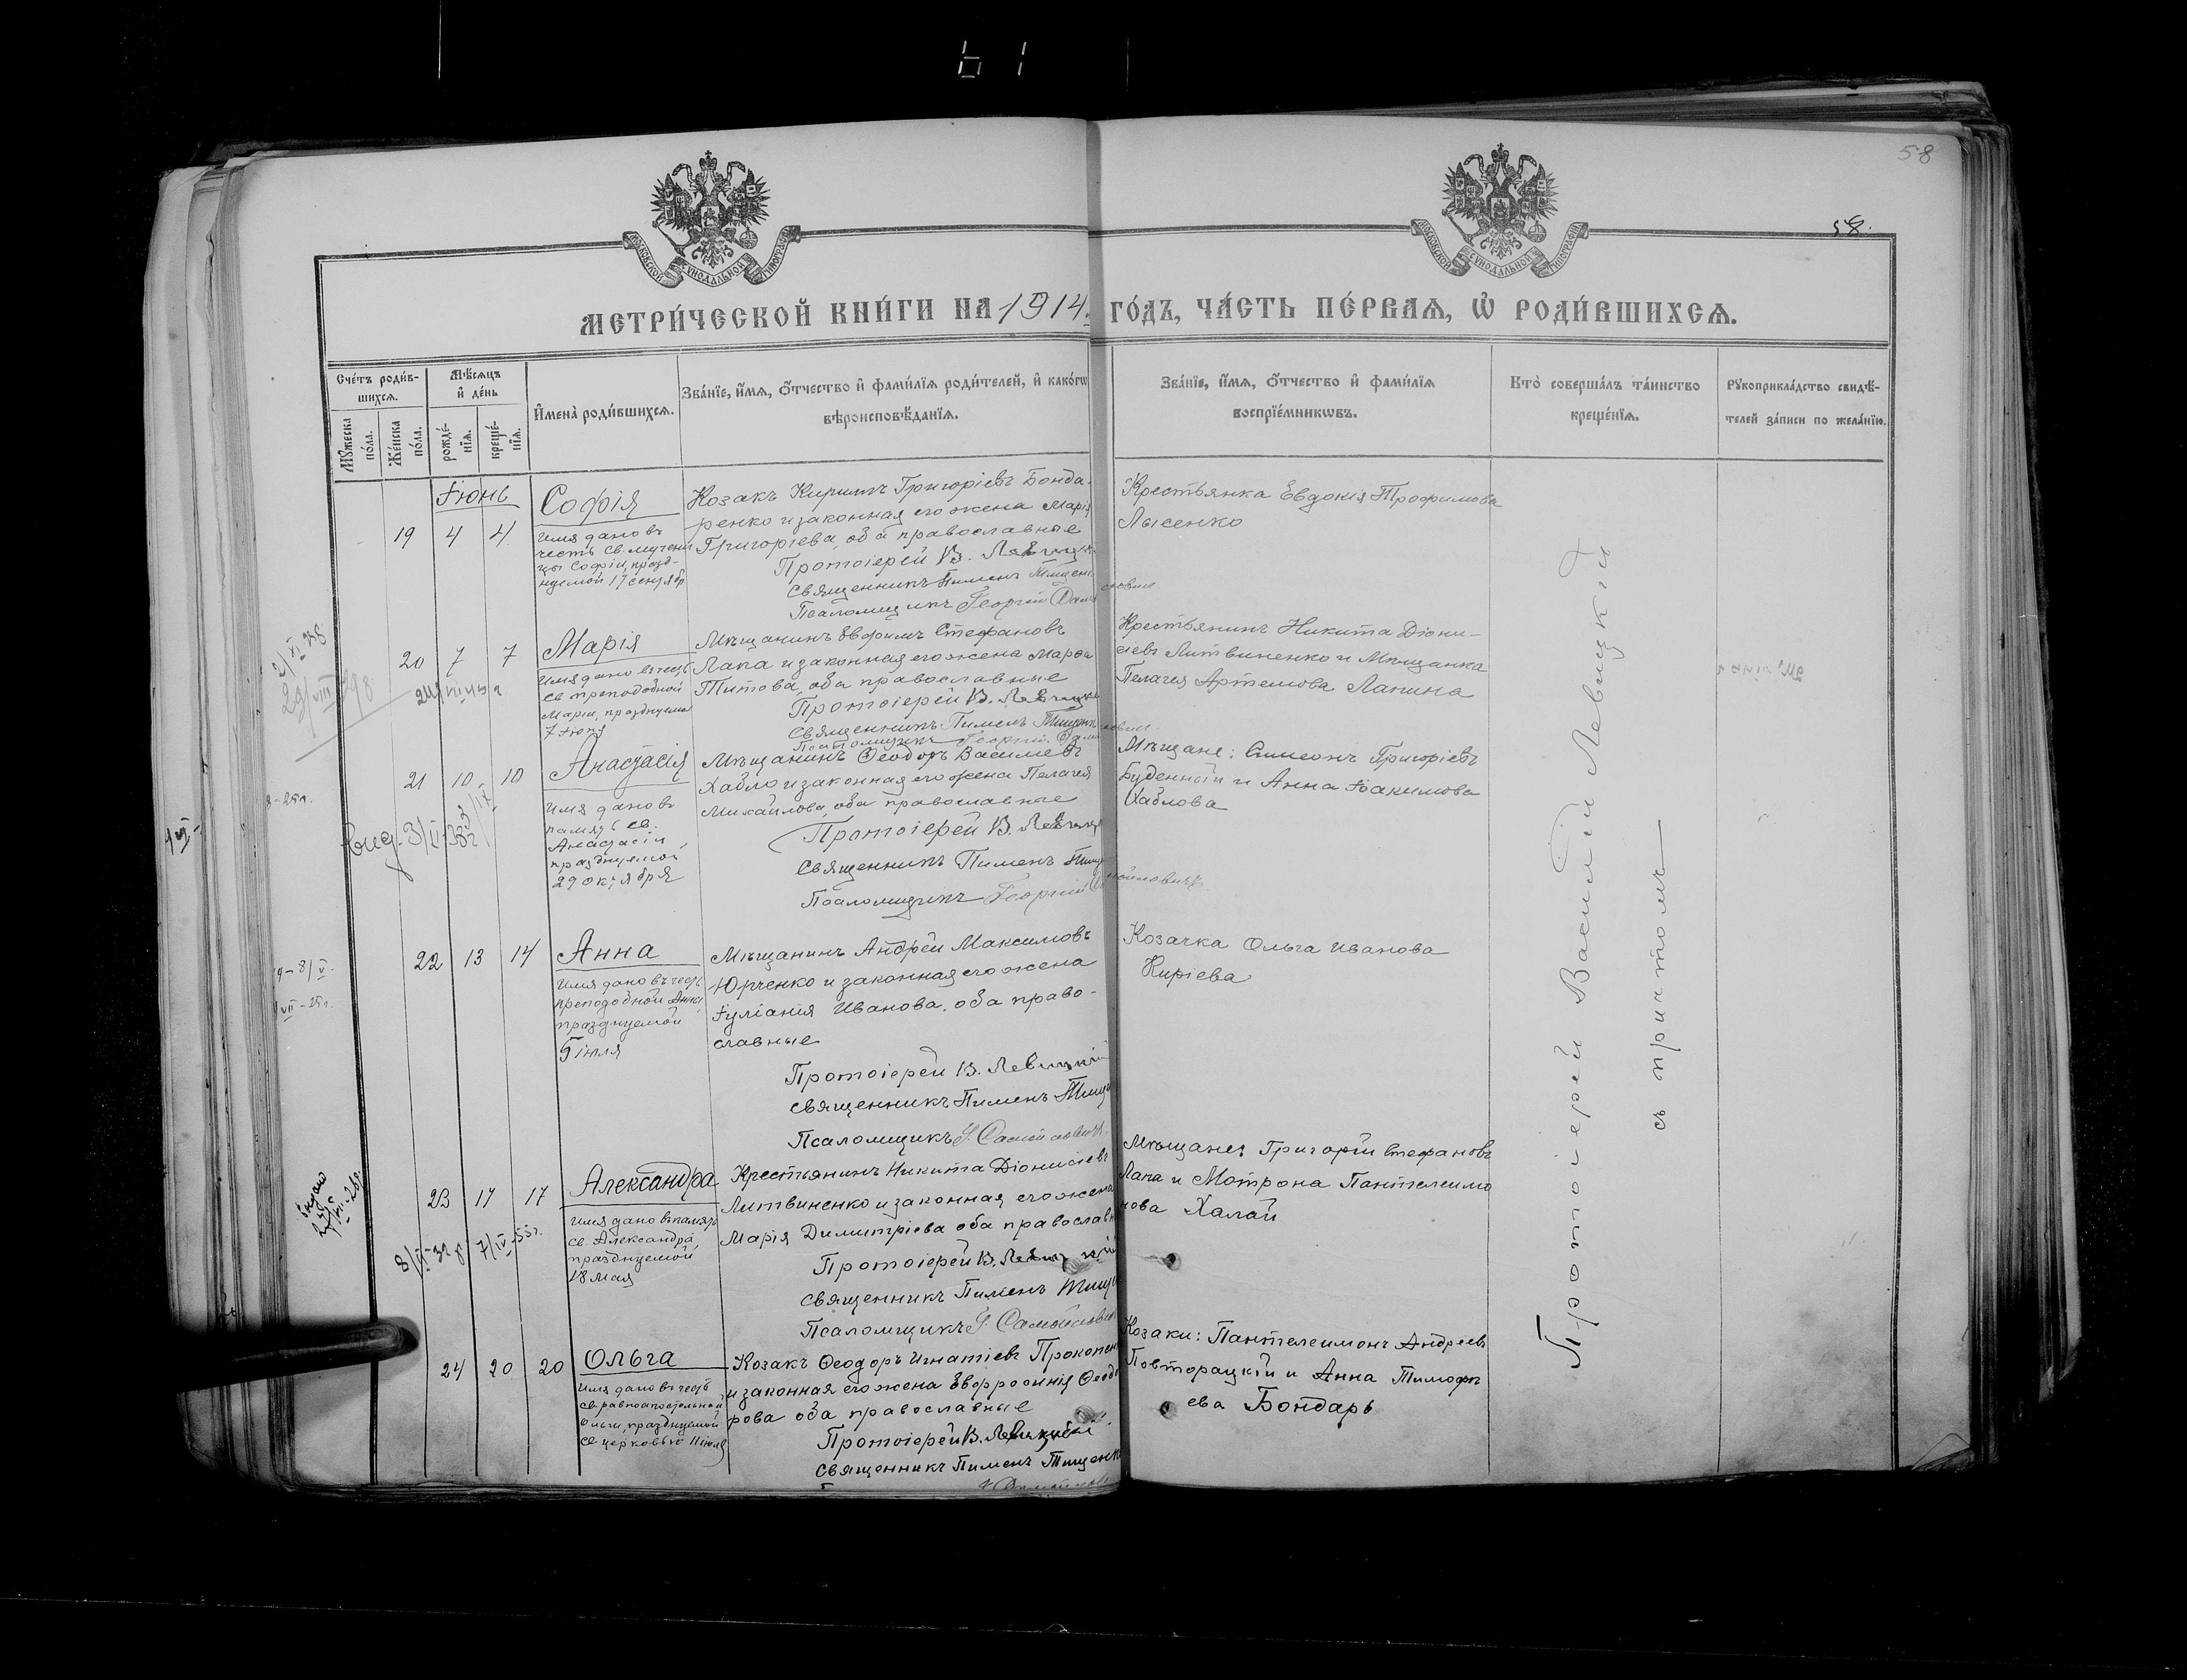 58
58.
МОСКОВСКОЙ СѴНОДАЛЬНОЙ ТИПОГРАФІИ
МОСКОВСКОЙ СѴНОДАЛЬНОЙ ТИПОГРАФІИ
МЕТРИ́ЧЕСКОЙ КНИ́ГИ НА 1914. ГО́ДЪ, ЧА́СТЬ ПЕ́РВАѦ, Ѡ҆ РОДИ́ВШИХСѦ.
Сче́тъ роди́в-
шихсѧ.
Мѹ́жеска
по́ла.
Же́нска
по́ла.
Мѣ́сѧцъ
и҆ де́нь
рожде́-
нїѧ.
креще́-
нїѧ.
И҆мена̀ роди́вшихсѧ.
Зва́нїе, и҆́мѧ, ѻ҆́тчество и҆ фами́лїѧ роди́телей, и҆ како́гѡ
вѣроисповѣ́данїѧ.
Зва́нїе, и҆́мѧ, ѻ҆́тчество и҆ фами́лїѧ
воспрїе́мникѡвъ.
Кто̀ соверша́лъ та́инство
креще́нїѧ.
Рꙋкоприкла́дство свидѣ́-
телей за́писи по жела́нїю.
Іюнь
19 4 4
Софія
Имя дано въ
честь св. мучени
цы Софіи, празд-
нуемой 17 сентябр
Козакъ Кириллъ Григоріевъ Бонда-
ренко и законная его жена Марія
Григоріева, оба православные
Протоіерей В. Левицк
Священникъ Пименъ Тищен
Псаломщикъ Георгій Само
Крестьянка Евдокія Трофимова
Лысенко
20 7 7
Марія
Имя дано въ честь
св. преподобной
Маріи, празднуемо
7 іюня
Мѣщанинъ Евфимъ Стефановъ
Лапа и законная его жена Марфа
Титова, оба православные
Протоіерей В. Левицкі
Священникъ Пименъ Тищенк
Псаломщикъ Георгій Само
Крестьянинъ Никита Діони-
сіевъ Литвиненко и Мѣщанка
Пелагея Артемова Лапина
21 10 10
Анастасія
Имя дано въ
память св.
Анастасіи,
празднуемой
29 октября
Мѣщанинъ Ѳеодоръ Василіевъ
Хабло и законная его жена Пелагея
Михайлова, оба православные
Протоіерей В. Левицк
Священникъ Пименъ Тищ
Псаломщикъ Георгій Самойловичъ
Мѣщане: Симеонъ Григоріевъ
Буденный и Анна Іоакимова
Хаблова
22 13 14
Анна
Имя дано въ честь
преподобной Анны,
празднуемой
5 іюля
Мѣщанинъ Андрей Максимовъ
Юрченко и законная его жена
Іуліанія Иванова, оба право-
славные
Протоіерей В. Левицкій
Священникъ Пименъ Тищ
Псаломщикъ Г. Самойловичъ
Козачка Ольга Иванова
Киріева
23 17 17
Александра
Имя дано въ память
св. Александра
празднуемой
18 мая
Крестьянинъ Никита Діонисіевъ
Литвиненко и законная его жена
Марія Димитріева оба православн
Протоіерей В. Левицкій
Священникъ Пименъ Тище
Псаломщикъ Г. Самойлович
Мѣщане: Григорій Стефановъ
Лапа и Мотрона Пантелеимо
нова Халай
24 20 20
Ольга
Имя дано въ честь
св. равноапостольной
Ольги, празднуемой
св. церковью 11 іюля
Козакъ Ѳеодоръ Игнатіевъ Прокопен
и законная его жена Евфросинія Ѳеодо
рова оба православные
Протоіерей В. Левицкій
Священникъ Пименъ Тищенк
Козаки: Пантелеимонъ Андреевъ
Повторацкій и Анна Тимофѣ
ева Бондарь
Протоіерей Василій Левицкій
съ причтомъ